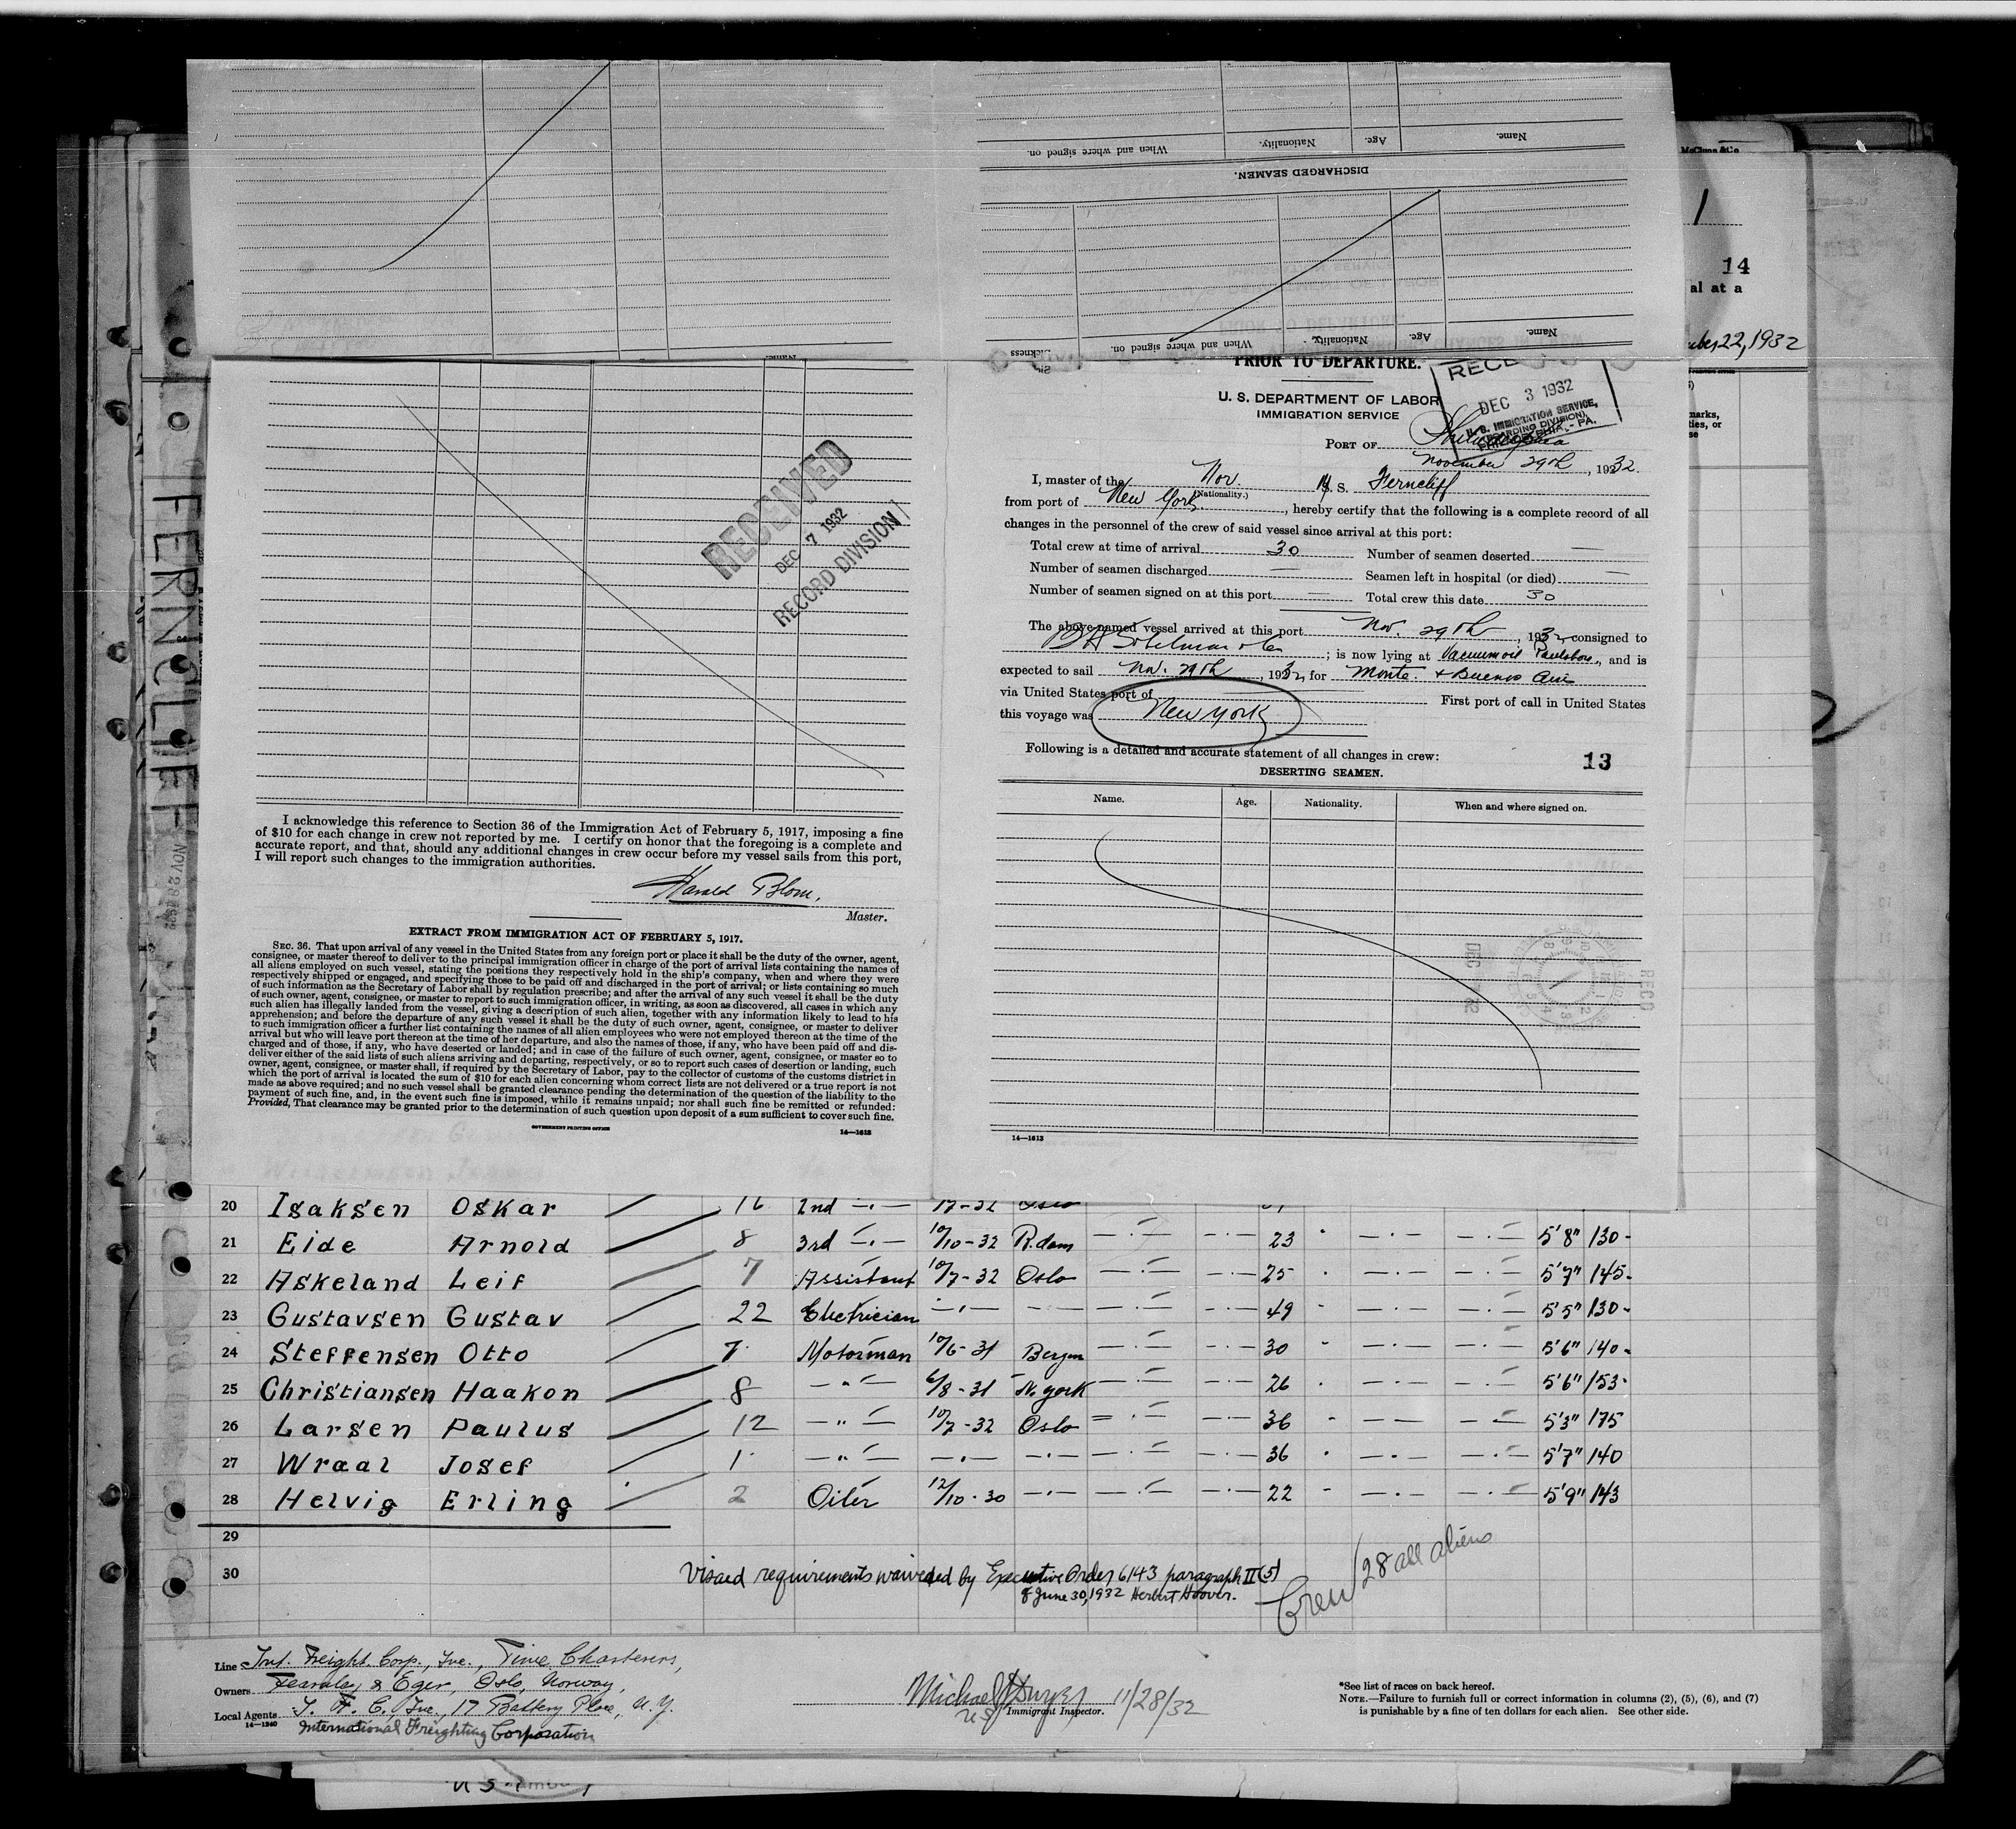 Name.
Age.
Nationality.
When and where signed on.
DISCHARGED SEAMEN.
Name.
Age.
Nationality.
When and where signed on.
Sickness
McClung & Co.
1
14
al at a
22, 1932
marks,
ties, or
se
PRIOR TO DEPARTURE.
U. S. DEPARTMENT OF LABOR
IMMIGRATION SERVICE
DEC 3 1932
U.S. IMMIGRATION SERVICE,
(BOARDING DIVISION),
PHILADELPHIA, - PA.
PORT OF Philadelphia
November 29th, 1932.
I, master of the Nor. M S. S. Ferncliff
(Nationality.)
from port of New York, hereby certify that the following is a complete record of all
changes in the personnel of the crew of said vessel since arrival at this port:
Total crew at time of arrival 30 Number of seamen deserted —
Number of seamen discharged — Seamen left in hospital (or died) —
Number of seamen signed on at this port — Total crew this date 30
The above-named vessel arrived at this port Nov. 29th, 1932, consigned to
; is now lying at Vacuum oil Paulsboro, and is
expected to sail Nov. 29th, 1932, for Monte. + Buenos
via United States port of First port of call in United States
this voyage was New York
Following is a detailed and accurate statement of all changes in crew:
13
DESERTING SEAMEN.
Name. Age. Nationality. When and where signed on.
14—1613
RECEIVED
DEC 7 1932
RECORD DIVISION
I acknowledge this reference to Section 36 of the Immigration Act of February 5, 1917, imposing a fine
of $10 for each change in crew not reported by me. I certify on honor that the foregoing is a complete and
accurate report, and that, should any additional changes in crew occur before my vessel sails from this port,
I will report such changes to the immigration authorities.
Harald Blom,
Master.
EXTRACT FROM IMMIGRATION ACT OF FEBRUARY 5, 1917.
SEC. 36. That upon arrival of any vessel in the United States from any foreign port or place it shall be the duty of the owner, agent,
consignee, or master thereof to deliver to the principal immigration officer in charge of the port of arrival lists containing the names of
all aliens employed on such vessel, stating the positions they respectively hold in the ship's company, when and where they were
respectively shipped or engaged, and specifying those to be paid off and discharged in the port of arrival; or lists containing so much
of such information as the Secretary of Labor shall by regulation prescribe; and after the arrival of any such vessel it shall be the duty
of such owner, agent, consignee, or master to report to such immigration officer, in writing, as soon as discovered, all cases in which any
such alien has illegally landed from the vessel, giving a description of such alien, together with any information likely to lead to his
apprehension; and before the departure of any such vessel it shall be the duty of such owner, agent, consignee, or master to deliver
to such immigration officer a further list containing the names of all alien employees who were not employed thereon at the time of the
arrival but who will leave port thereon at the time of her departure, and also the names of those, if any, who have been paid off and dis-
charged and of those, if any, who have deserted or landed; and in case of the failure of such owner, agent, consignee, or master so to
deliver either of the said lists of such aliens arriving and departing, respectively, or so to report such cases of desertion or landing, such
owner, agent, consignee, or master shall, if required by the Secretary of Labor, pay to the collector of customs of the customs district in
which the port of arrival is located the sum of $10 for each alien concerning whom correct lists are not delivered or a true report is not
made as above required; and no such vessel shall be granted clearance pending the determination of the question of the liability to the
payment of such fine, and, in the event such fine is imposed, while it remains unpaid; nor shall such fine be remitted or refunded:
Provided, That clearance may be granted prior to the determination of such question upon deposit of a sum sufficient to cover such fine.
GOVERNMENT PRINTING OFFICE 14—1613
FERNCLIFF
NOV 28 1932
20 Isaksen Oskar 2nd Oslo
21 Eide Arnold 8 3rd 10/10-32 R.dam 23 5'8" 130
22 Askeland Leif 7 Assistant 10/7-32 Oslo 25 5'7" 145
23 Gustavsen Gustav 22 Electrician 49 5'5" 130
24 Steffensen Otto 7 Motorman 10/6-31 Bergen 30 5'6" 140
25 Christiansen Haakon 8 — " — 6/8-31 N. york 26 5'6" 153
26 Larsen Paulus 12 — " — 10/7-32 Oslo 36 5'3" 175
27 Wraal Josef 1 — " — 36 5'7" 140
28 Helvig Erling 2 Oiler 12/10-30 22 5'9" 143
29
30
Visaed requirements waiveded by Executive Order 6143 paragraph II (5)
of June 30, 1932 Herbert Hoover.
Crew 28 all aliens
Line Int. Freight. Corp., Inc., Time Charterers,
Owners Fearnley & Eger, Oslo, Norway,
Local Agents I. F. C., Inc., 17 Battery Place, N. Y.
14—1240
International Freighting Corporation
Michael Dwyer 11/28/32
U S Immigrant Inspector.
*See list of races on back hereof.
NOTE.—Failure to furnish full or correct information in columns (2), (5), (6), and (7)
is punishable by a fine of ten dollars for each alien. See other side.